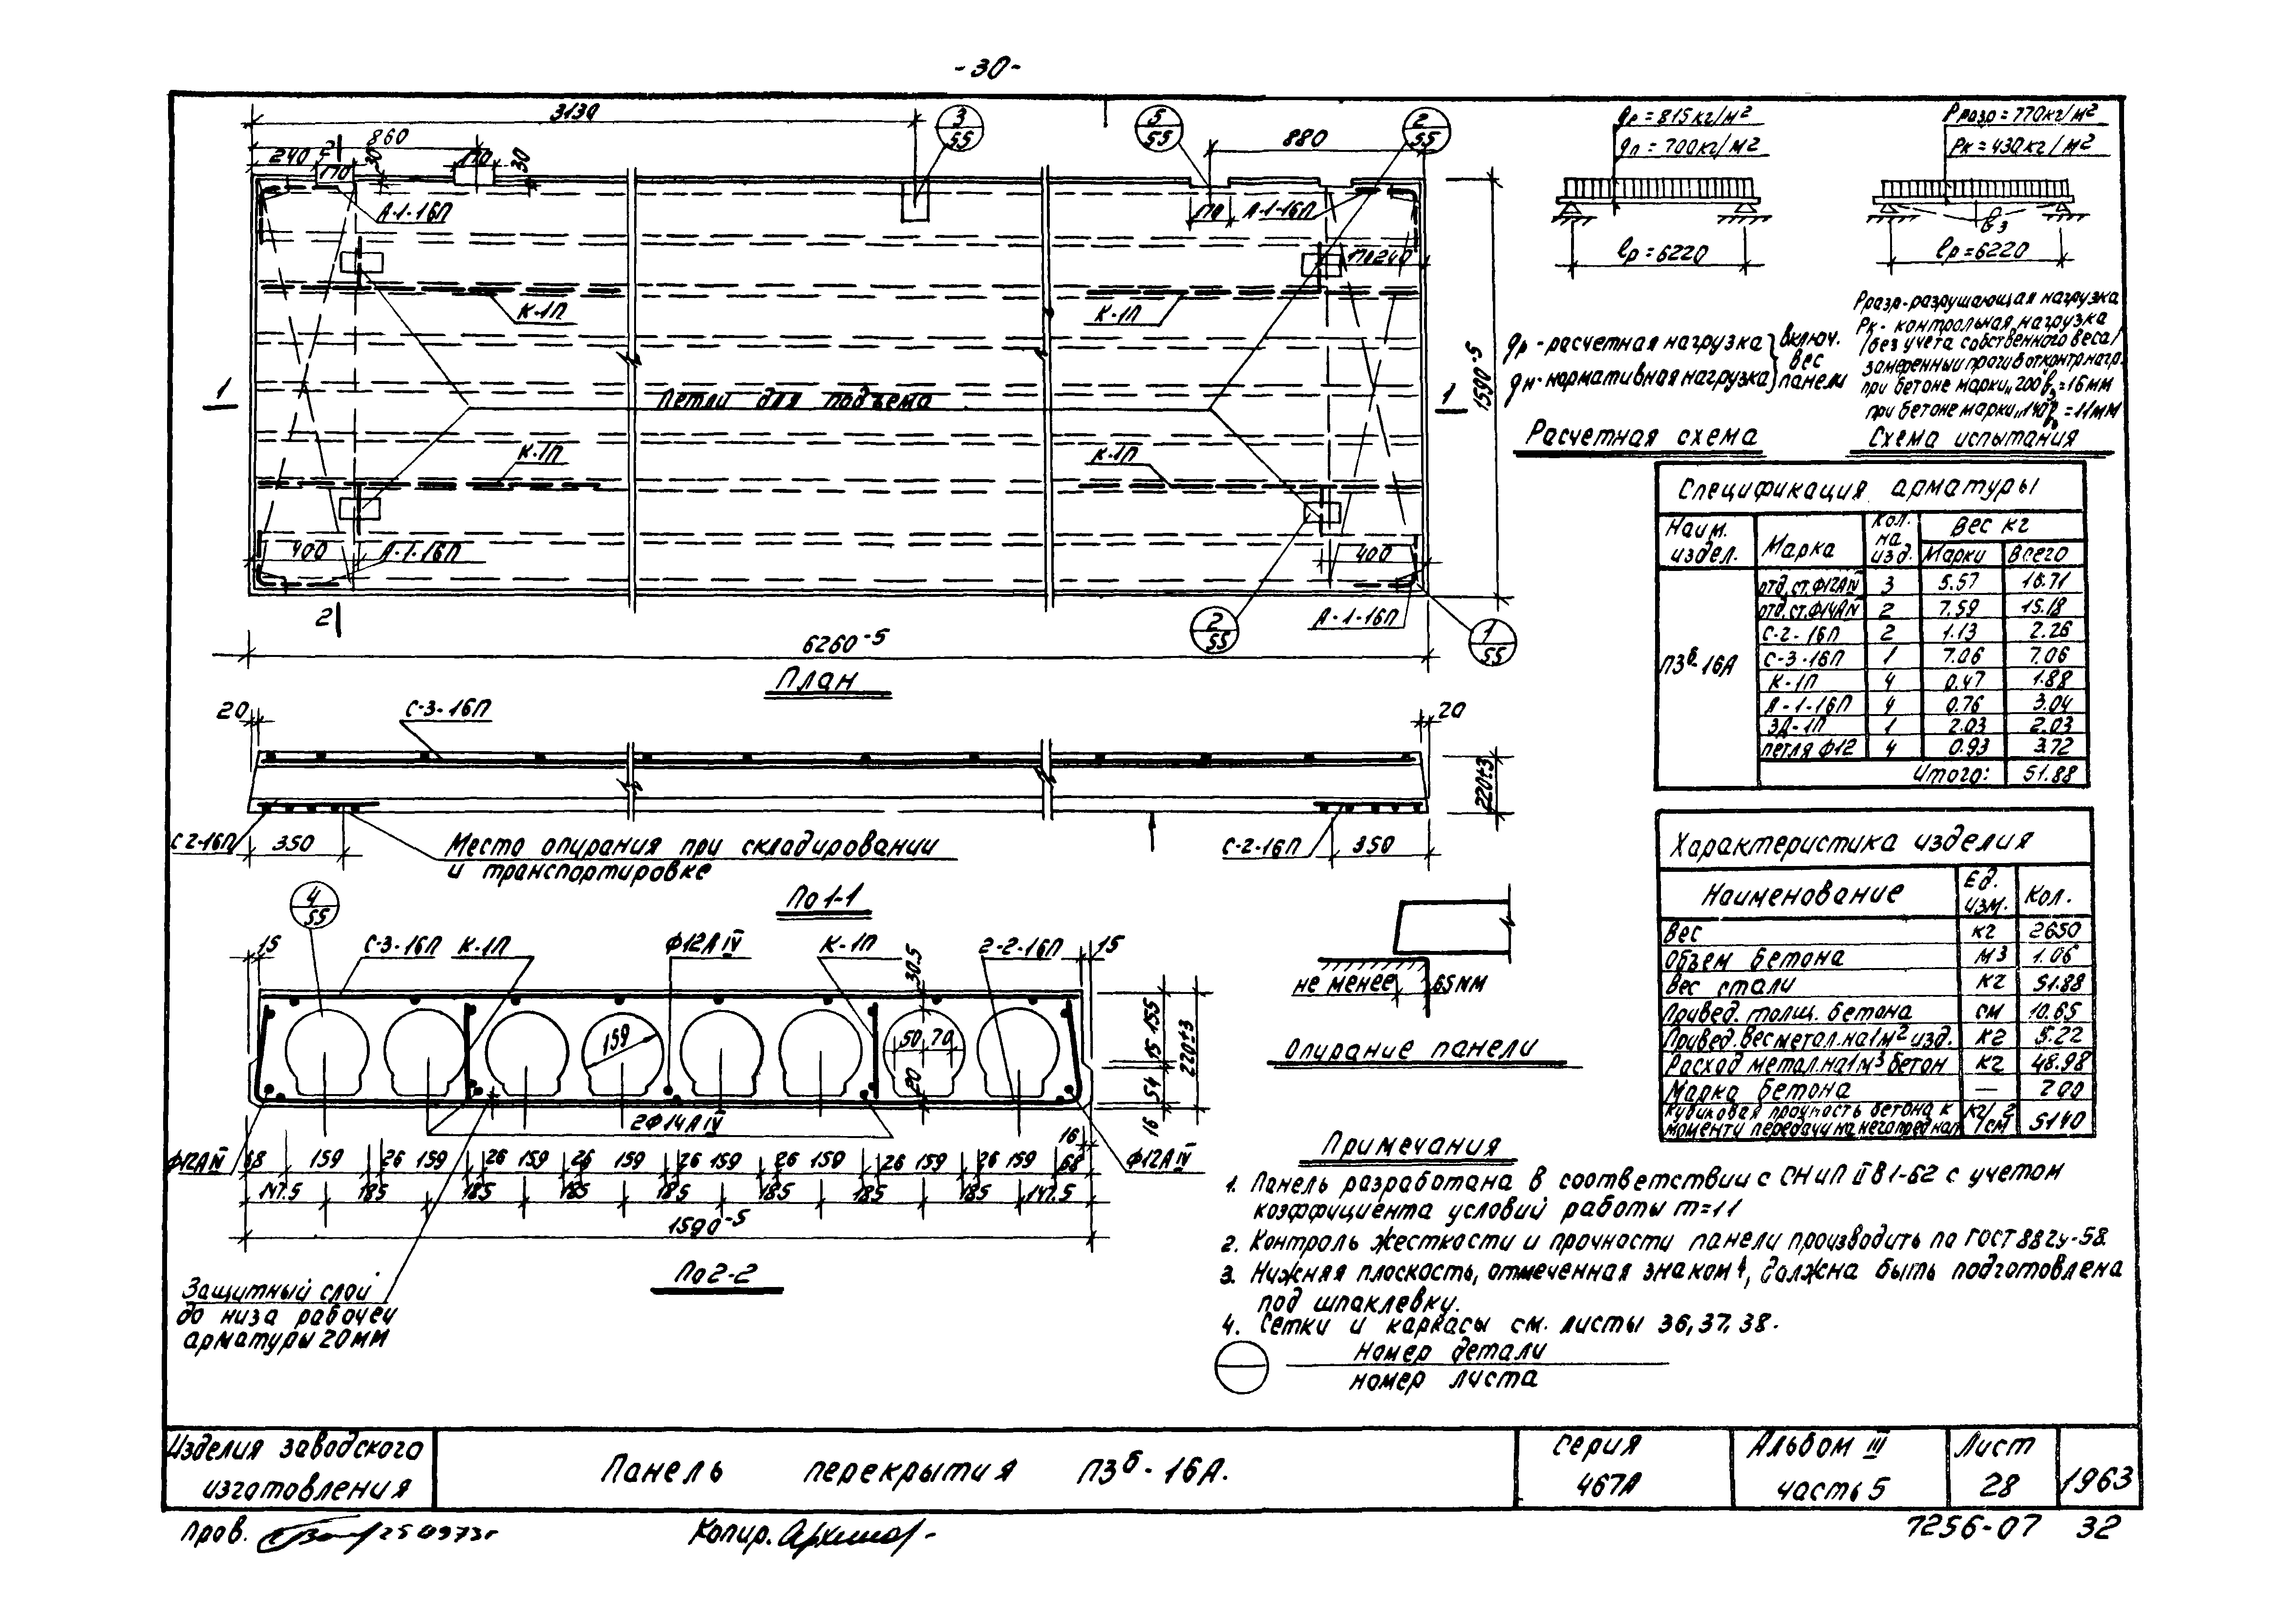 -30-
3130
860
240
170
30
170
30
3
55
5
55
2
55
880
170
А-1-16П
А-1-16П
240
К-1П
К-1П
1
1
1590-5
Петли для подъема
К-1П
К-1П
400
А-1-16П
400
А-1-16П
2
2
2
55
1
55
6260-5
План
gр=815кг/м2
gп=700кг/м2
ℓр=6220
Рразр=770кг/м2
Рк=430кг/м2
ℓр=6220
gр-расчетная нагрузка
gн-нормативная нагрузка
включ.
вес
панели
Расчетная схема
Рразр-разрушающая нагрузка
Рк-контрольная нагрузка
/без учета собственного веса/
замеренный прогиб от контр.нагр.
при бетоне марки "200" =16мм
при бетоне марки "140" =11мм
Схема испытания
Спецификация арматуры
Наим. издел. Марка Кол. на изд. Вес кг
Марки Всего
П3б-16А
отд.ст.Ф12АIV 3 5.57 16.71
отд.ст.Ф14АIV 2 7.59 15.18
С-2-16П 2 1.13 2.26
С-3-16П 1 7.06 7.06
К-1П 4 0.47 1.88
А-1-16П 4 0.76 3.04
ЗД-1П 1 2.03 2.03
петля Ф12 4 0.93 3.72
Итого: 51.88
20
С-3-16П
20
220±3
С2-16П
350
Место опирания при складировании
и транспортировке
С-2-16П
350
По 1-1
4
55
15
С-3-16П
К-1П
Ф12АIV
К-1П
30.5
2-2-16П
15
159
50
70
20
155
15
54
16
220±3
2Ф14АIV
16
Ф12АIV
68 159 26 159 26 159 26 159 26 159 26 159 26 159 26 159 68
Ф12АIV
147.5 185 185 185 185 185 185 185 147.5
1590-5
По 2-2
Защитный слой
до низа рабочей
арматуры 20мм
не менее
65мм
Опирание панели
Характеристика изделия
Наименование Ед. изм. Кол.
Вес кг 2650
Объем бетона м3 1.06
Вес стали кг 51.88
Привед. толщ. бетона см 10.65
Привед.вес метал.на1м2изд. кг 5.22
Расход метал.на1м3бетон кг 48.98
Марка бетона — 200
Кубиковая прочность бетона к
моменту передачи на него пред.нап. кг/см2 5140
Примечания
1. Панель разработана в соответствии с СНиП II В1-62 с учетом
коэффициента условий работы m=11
2. Контроль жесткости и прочности панели производить по ГОСТ 8829-58.
3. Нижняя плоскость, отмеченная знаком ↑, должна быть подготовлена
под шпаклевку.
4. Сетки и каркасы см. листы 36,37,38.
Номер детали
номер листа
Изделия заводского
изготовления
Панель перекрытия П3б-16А.
Серия
467А
Альбом III
часть 5
Лист
28
1963
Пров.
Копир.
7256-07 32